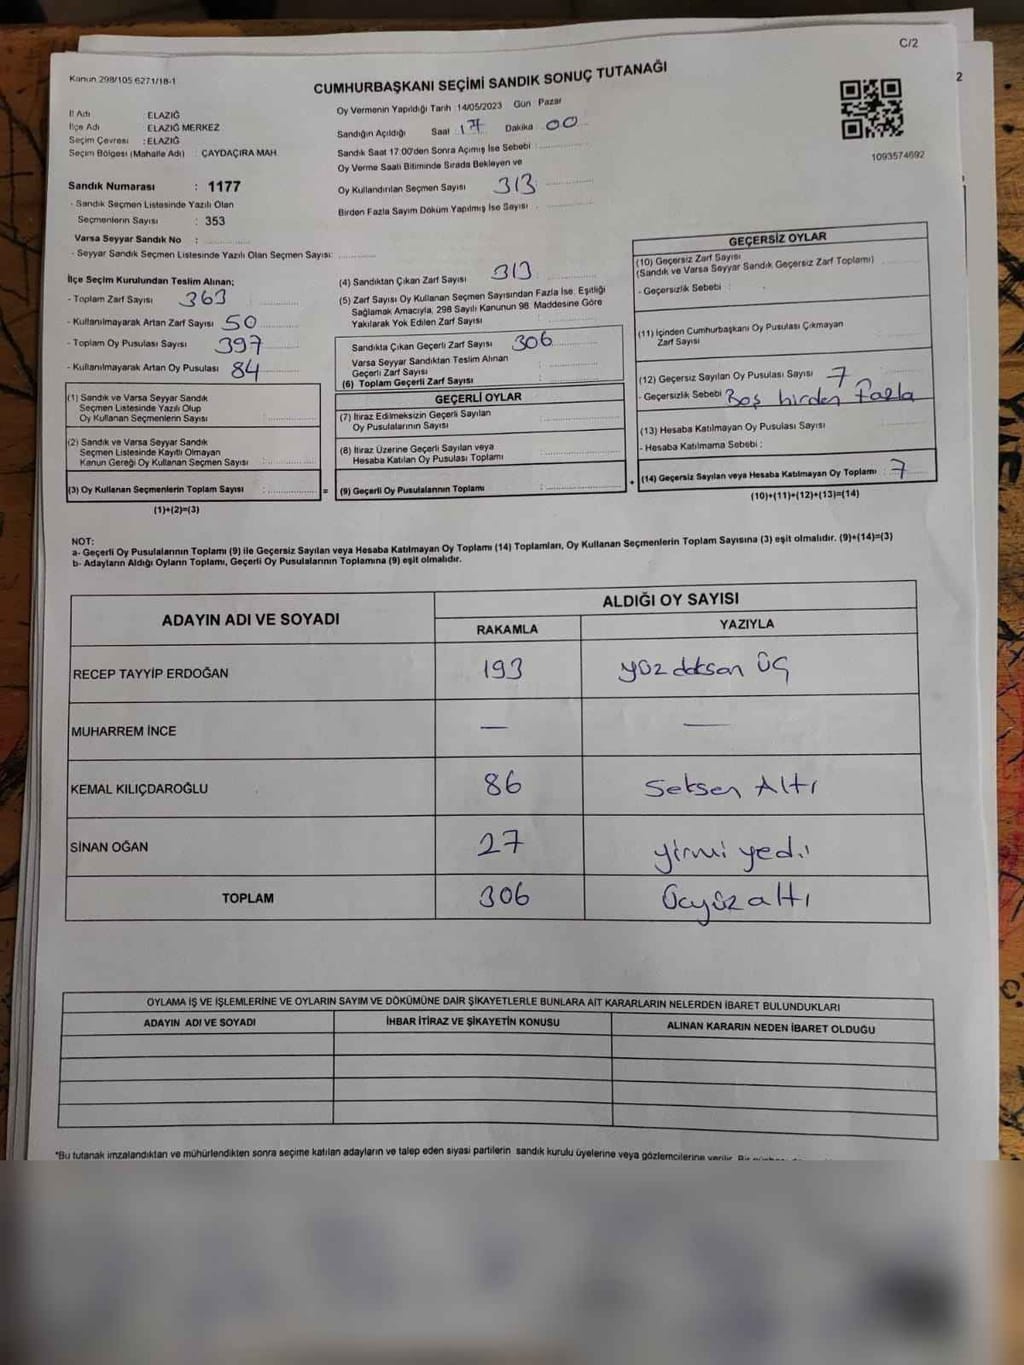 C/2
Kanun 298/105 6271/18-1
CUMHURBAŞKANI SEÇİMİ SANDIK SONUÇ TUTANAĞI
2
İl Adı ELAZIĞ
İlçe Adı ELAZIĞ MERKEZ
Seçim Çevresi : ELAZIĞ
Seçim Bölgesi (Mahalle Adı) : ÇAYDAÇIRA MAH.
Sandık Numarası : 1177
- Sandık Seçmen Listesinde Yazılı Olan
Seçmenlerin Sayısı : 353
Varsa Seyyar Sandık No :
- Seyyar Sandık Seçmen Listesinde Yazılı Olan Seçmen Sayısı:
Oy Vermenin Yapıldığı Tarih 14/05/2023 Gün Pazar
Sandığın Açıldığı Saat 17 Dakika 00
Sandık Saat 17:00'den Sonra Açılmış İse Sebebi :
Oy Verme Saati Bitiminde Sırada Bekleyen ve
Oy Kullandırılan Seçmen Sayısı 313
Birden Fazla Sayım Döküm Yapılmış İse Sayısı .
1093574692
İlçe Seçim Kurulundan Teslim Alınan;
- Toplam Zarf Sayısı 363
- Kullanılmayarak Artan Zarf Sayısı 50
- Toplam Oy Pusulası Sayısı 397
- Kullanılmayarak Artan Oy Pusulası 84
(1) Sandık ve Varsa Seyyar Sandık
Seçmen Listesinde Yazılı Olup
Oy Kullanan Seçmenlerin Sayısı :
(2) Sandık ve Varsa Seyyar Sandık
Seçmen Listesinde Kayıtlı Olmayan
Kanun Gereği Oy Kullanan Seçmen Sayısı :
(3) Oy Kullanan Seçmenlerin Toplam Sayısı :
(1)+(2)=(3)
=
(4) Sandıktan Çıkan Zarf Sayısı 313
(5) Zarf Sayısı Oy Kullanan Seçmen Sayısından Fazla İse; Eşitliği
Sağlamak Amacıyla, 298 Sayılı Kanunun 98. Maddesine Göre
Yakılarak Yok Edilen Zarf Sayısı :
Sandıkta Çıkan Geçerli Zarf Sayısı 306
Varsa Seyyar Sandıktan Teslim Alınan
Geçerli Zarf Sayısı :
(6) Toplam Geçerli Zarf Sayısı :
GEÇERLİ OYLAR
(7) İtiraz Edilmeksizin Geçerli Sayılan
Oy Pusulalarının Sayısı :
(8) İtiraz Üzerine Geçerli Sayılan veya
Hesaba Katılan Oy Pusulası Toplamı :
(9) Geçerli Oy Pusulalarının Toplamı :
+
GEÇERSİZ OYLAR
(10) Geçersiz Zarf Sayısı
(Sandık ve Varsa Seyyar Sandık Geçersiz Zarf Toplamı)
- Geçersizlik Sebebi :
(11) İçinden Cumhurbaşkanı Oy Pusulası Çıkmayan
Zarf Sayısı
(12) Geçersiz Sayılan Oy Pusulası Sayısı 7
- Geçersizlik Sebebi Boş birden Fazla
(13) Hesaba Katılmayan Oy Pusulası Sayısı
- Hesaba Katılmama Sebebi :
(14) Geçersiz Sayılan veya Hesaba Katılmayan Oy Toplamı : 7
(10)+(11)+(12)+(13)=(14)
NOT:
a- Geçerli Oy Pusulalarının Toplamı (9) ile Geçersiz Sayılan veya Hesaba Katılmayan Oy Toplamı (14) Toplamları, Oy Kullanan Seçmenlerin Toplam Sayısına (3) eşit olmalıdır. (9)+(14)=(3)
b- Adayların Aldığı Oyların Toplamı, Geçerli Oy Pusulalarının Toplamına (9) eşit olmalıdır.
ADAYIN ADI VE SOYADI
ALDIĞI OY SAYISI
RAKAMLA YAZIYLA
RECEP TAYYİP ERDOĞAN 193 yüz doksan üç
MUHARREM İNCE — —
KEMAL KILIÇDAROĞLU 86 Seksen Altı
SİNAN OĞAN 27 yirmi yedi
TOPLAM 306 Üçyüz altı
OYLAMA İŞ VE İŞLEMLERİNE VE OYLARIN SAYIM VE DÖKÜMÜNE DAİR ŞİKAYETLERLE BUNLARA AİT KARARLARIN NELERDEN İBARET BULUNDUKLARI
ADAYIN ADI VE SOYADI İHBAR İTİRAZ VE ŞİKAYETİN KONUSU ALINAN KARARIN NEDEN İBARET OLDUĞU
*Bu tutanak imzalandıktan ve mühürlendikten sonra seçime katılan adayların ve talep eden siyasi partilerin sandık kurulu üyelerine veya gözlemcilerine verilir. Bir